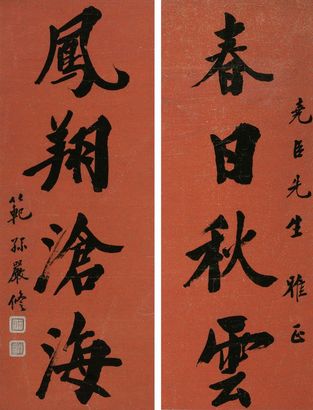 堯臣先生雅正
春日秋雲
鳳翔滄海
範孫嚴修